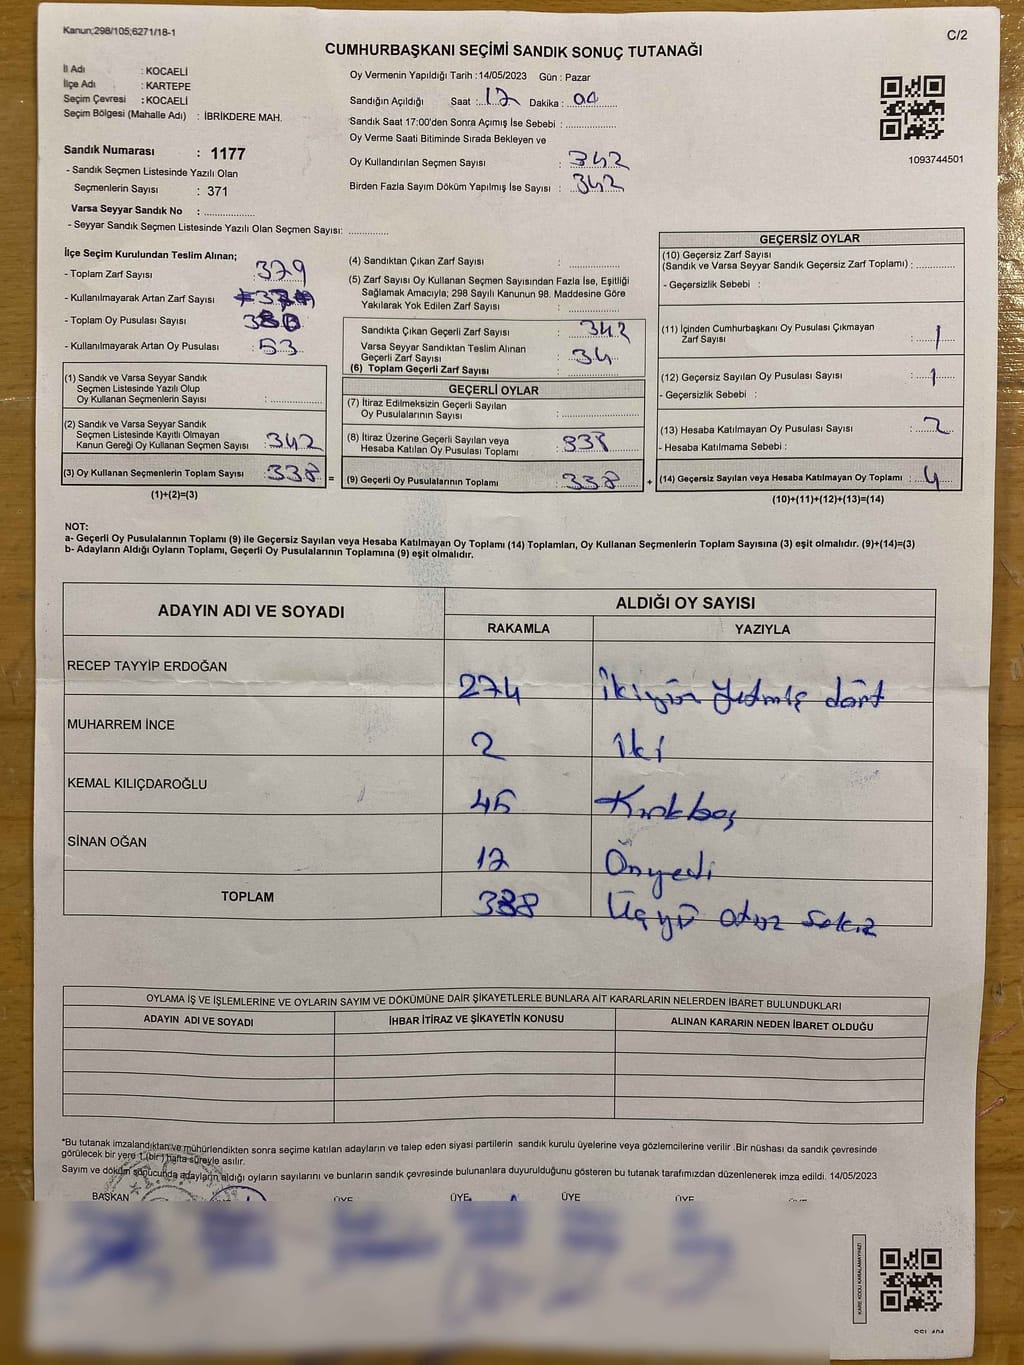 Kanun;298/105;6271/18-1
C/2
CUMHURBAŞKANI SEÇİMİ SANDIK SONUÇ TUTANAĞI
İl Adı : KOCAELİ
İlçe Adı : KARTEPE
Seçim Çevresi : KOCAELİ
Seçim Bölgesi (Mahalle Adı) : İBRİKDERE MAH.
Sandık Numarası : 1177
- Sandık Seçmen Listesinde Yazılı Olan
Seçmenlerin Sayısı : 371
Varsa Seyyar Sandık No : ..................
- Seyyar Sandık Seçmen Listesinde Yazılı Olan Seçmen Sayısı: ..............
Oy Vermenin Yapıldığı Tarih : 14/05/2023 Gün : Pazar
Sandığın Açıldığı Saat : 17 Dakika : 00
Sandık Saat 17:00'den Sonra Açımış İse Sebebi : ..................
Oy Verme Saati Bitiminde Sırada Bekleyen ve
Oy Kullandırılan Seçmen Sayısı : 342
Birden Fazla Sayım Döküm Yapılmış İse Sayısı : 342
1093744501
İlçe Seçim Kurulundan Teslim Alınan;
- Toplam Zarf Sayısı : 379
- Kullanılmayarak Artan Zarf Sayısı
- Toplam Oy Pusulası Sayısı :
- Kullanılmayarak Artan Oy Pusulası : 53
(1) Sandık ve Varsa Seyyar Sandık
Seçmen Listesinde Yazılı Olup
Oy Kullanan Seçmenlerin Sayısı : ..................
(2) Sandık ve Varsa Seyyar Sandık
Seçmen Listesinde Kayıtlı Olmayan
Kanun Gereği Oy Kullanan Seçmen Sayısı : 342
(3) Oy Kullanan Seçmenlerin Toplam Sayısı : 338 =
(1)+(2)=(3)
(4) Sandıktan Çıkan Zarf Sayısı : ..................
(5) Zarf Sayısı Oy Kullanan Seçmen Sayısından Fazla İse, Eşitliği
Sağlamak Amacıyla; 298 Sayılı Kanunun 98. Maddesine Göre
Yakılarak Yok Edilen Zarf Sayısı : ..................
Sandıkta Çıkan Geçerli Zarf Sayısı : 342
Varsa Seyyar Sandıktan Teslim Alınan
Geçerli Zarf Sayısı : 34
(6) Toplam Geçerli Zarf Sayısı :
GEÇERLİ OYLAR
(7) İtiraz Edilmeksizin Geçerli Sayılan
Oy Pusulalarının Sayısı : ..................
(8) İtiraz Üzerine Geçerli Sayılan veya
Hesaba Katılan Oy Pusulası Toplamı : 338
(9) Geçerli Oy Pusulalarının Toplamı : 338 +
GEÇERSİZ OYLAR
(10) Geçersiz Zarf Sayısı
(Sandık ve Varsa Seyyar Sandık Geçersiz Zarf Toplamı) : ..............
- Geçersizlik Sebebi :
(11) İçinden Cumhurbaşkanı Oy Pusulası Çıkmayan
Zarf Sayısı : 1
(12) Geçersiz Sayılan Oy Pusulası Sayısı : 1
- Geçersizlik Sebebi :
(13) Hesaba Katılmayan Oy Pusulası Sayısı : 2
- Hesaba Katılmama Sebebi :
(14) Geçersiz Sayılan veya Hesaba Katılmayan Oy Toplamı : 4
(10)+(11)+(12)+(13)=(14)
NOT:
a- Geçerli Oy Pusulalarının Toplamı (9) ile Geçersiz Sayılan veya Hesaba Katılmayan Oy Toplamı (14) Toplamları, Oy Kullanan Seçmenlerin Toplam Sayısına (3) eşit olmalıdır. (9)+(14)=(3)
b- Adayların Aldığı Oyların Toplamı, Geçerli Oy Pusulalarının Toplamına (9) eşit olmalıdır.
ADAYIN ADI VE SOYADI ALDIĞI OY SAYISI
RAKAMLA YAZIYLA
RECEP TAYYİP ERDOĞAN 274 İkiyüz Yetmiş dört
MUHARREM İNCE 2 İki
KEMAL KILIÇDAROĞLU 45 Kırkbeş
SİNAN OĞAN 17 Onyedi
TOPLAM 338 Üçyüz otuz sekiz
OYLAMA İŞ VE İŞLEMLERİNE VE OYLARIN SAYIM VE DÖKÜMÜNE DAİR ŞİKAYETLERLE BUNLARA AİT KARARLARIN NELERDEN İBARET BULUNDUKLARI
ADAYIN ADI VE SOYADI İHBAR İTİRAZ VE ŞİKAYETİN KONUSU ALINAN KARARIN NEDEN İBARET OLDUĞU
*Bu tutanak imzalandıktan ve mühürlendikten sonra seçime katılan adayların ve talep eden siyasi partilerin sandık kurulu üyelerine veya gözlemcilerine verilir .Bir nüshası da sandık çevresinde
görülecek bir yere 1 (bir) hafta süreyle asılır.
Sayım ve döküm sonucunda adayların aldığı oyların sayılarını ve bunların sandık çevresinde bulunanlara duyurulduğunu gösteren bu tutanak tarafımızdan düzenlenerek imza edildi. 14/05/2023
BAŞKAN ÜYE ÜYE ÜYE ÜYE
KARE KODU KARALAMAYINIZ!